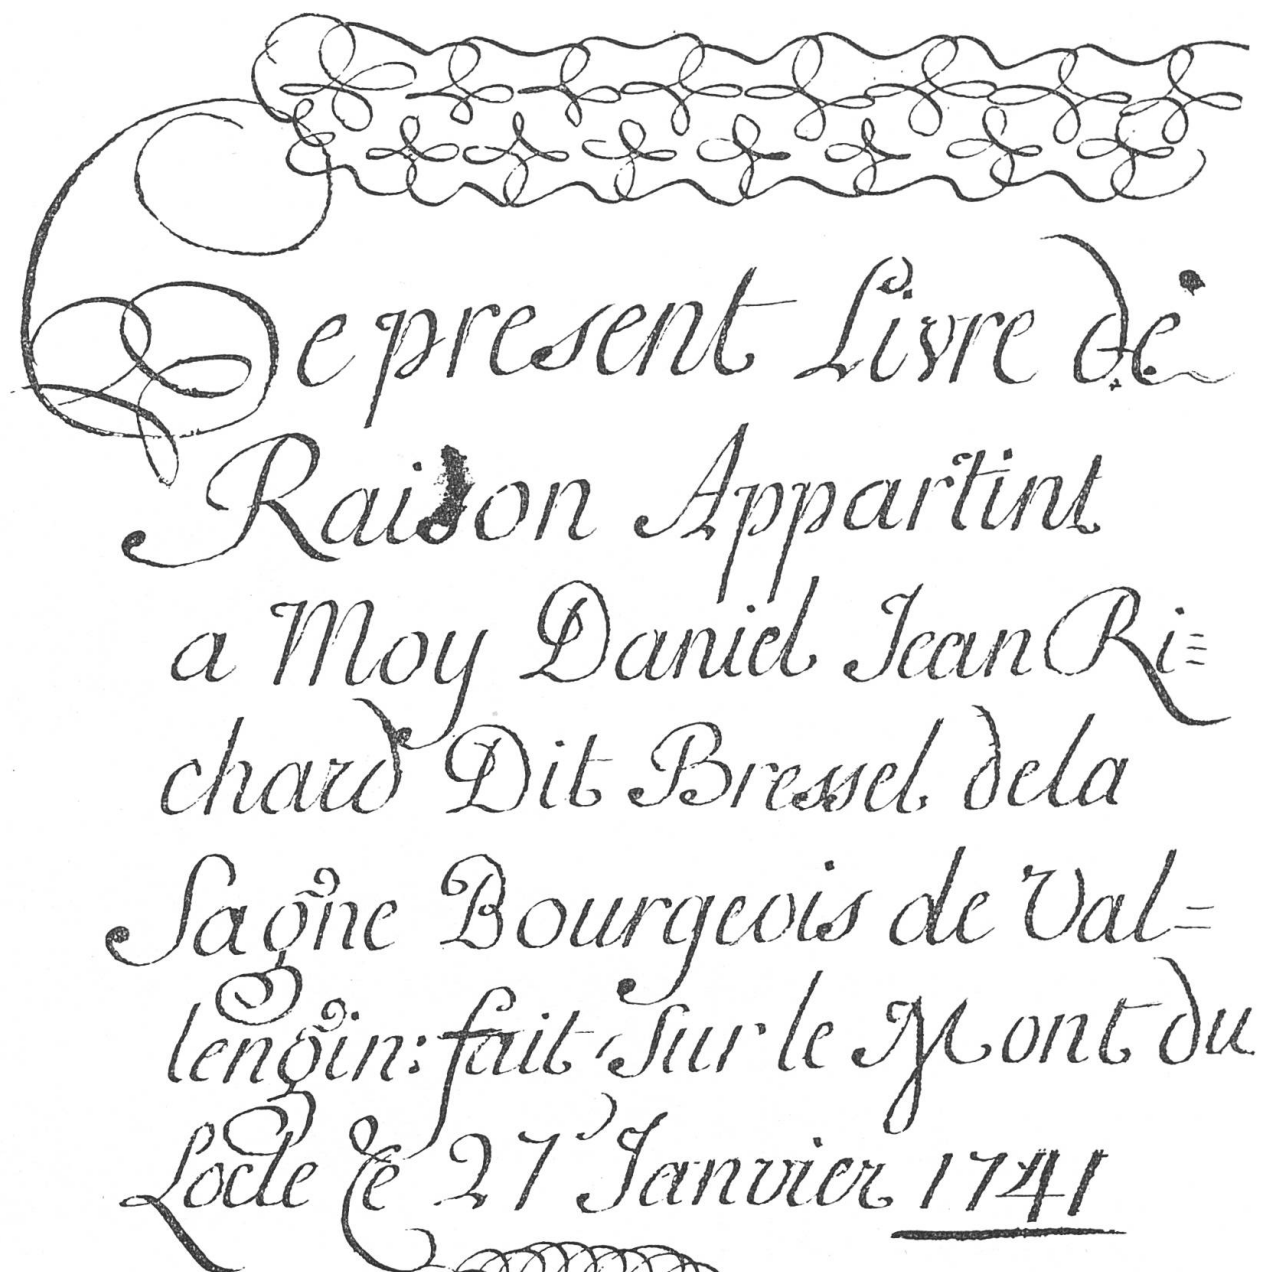 Ce present Livre de
Raison Appartint
a Moy Daniel Jean Ri=
chard Dit Bressel dela
Sagne Bourgeois de Val=
lengin: fait Sur le Mont du
Locle Ce 27 Janvier 1741